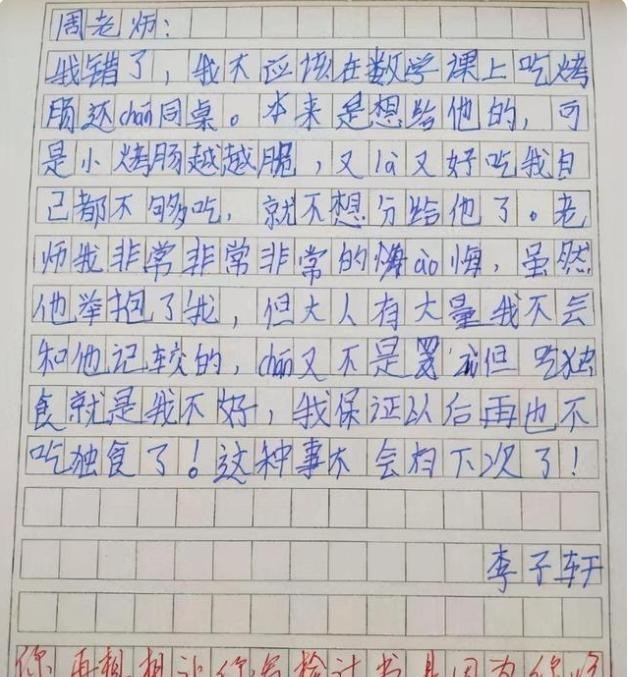 周老师：
我错了，我不应该在数学课上吃烤
肠还chán同桌。本来是想给他的，可
是小烤肠越越脆，又là又好吃我自
己都不够吃，就不想分给他了。老
师我非常非常非常的悔ào悔，虽然
他举抱了我，但大人有大量我不会
和他记较的，chán又不是罪 但吃独
食就是我不好，我保证以后再也不
吃独食了！这种事不会有下次了！
李子轩
你再想想让你写检讨书是因为你